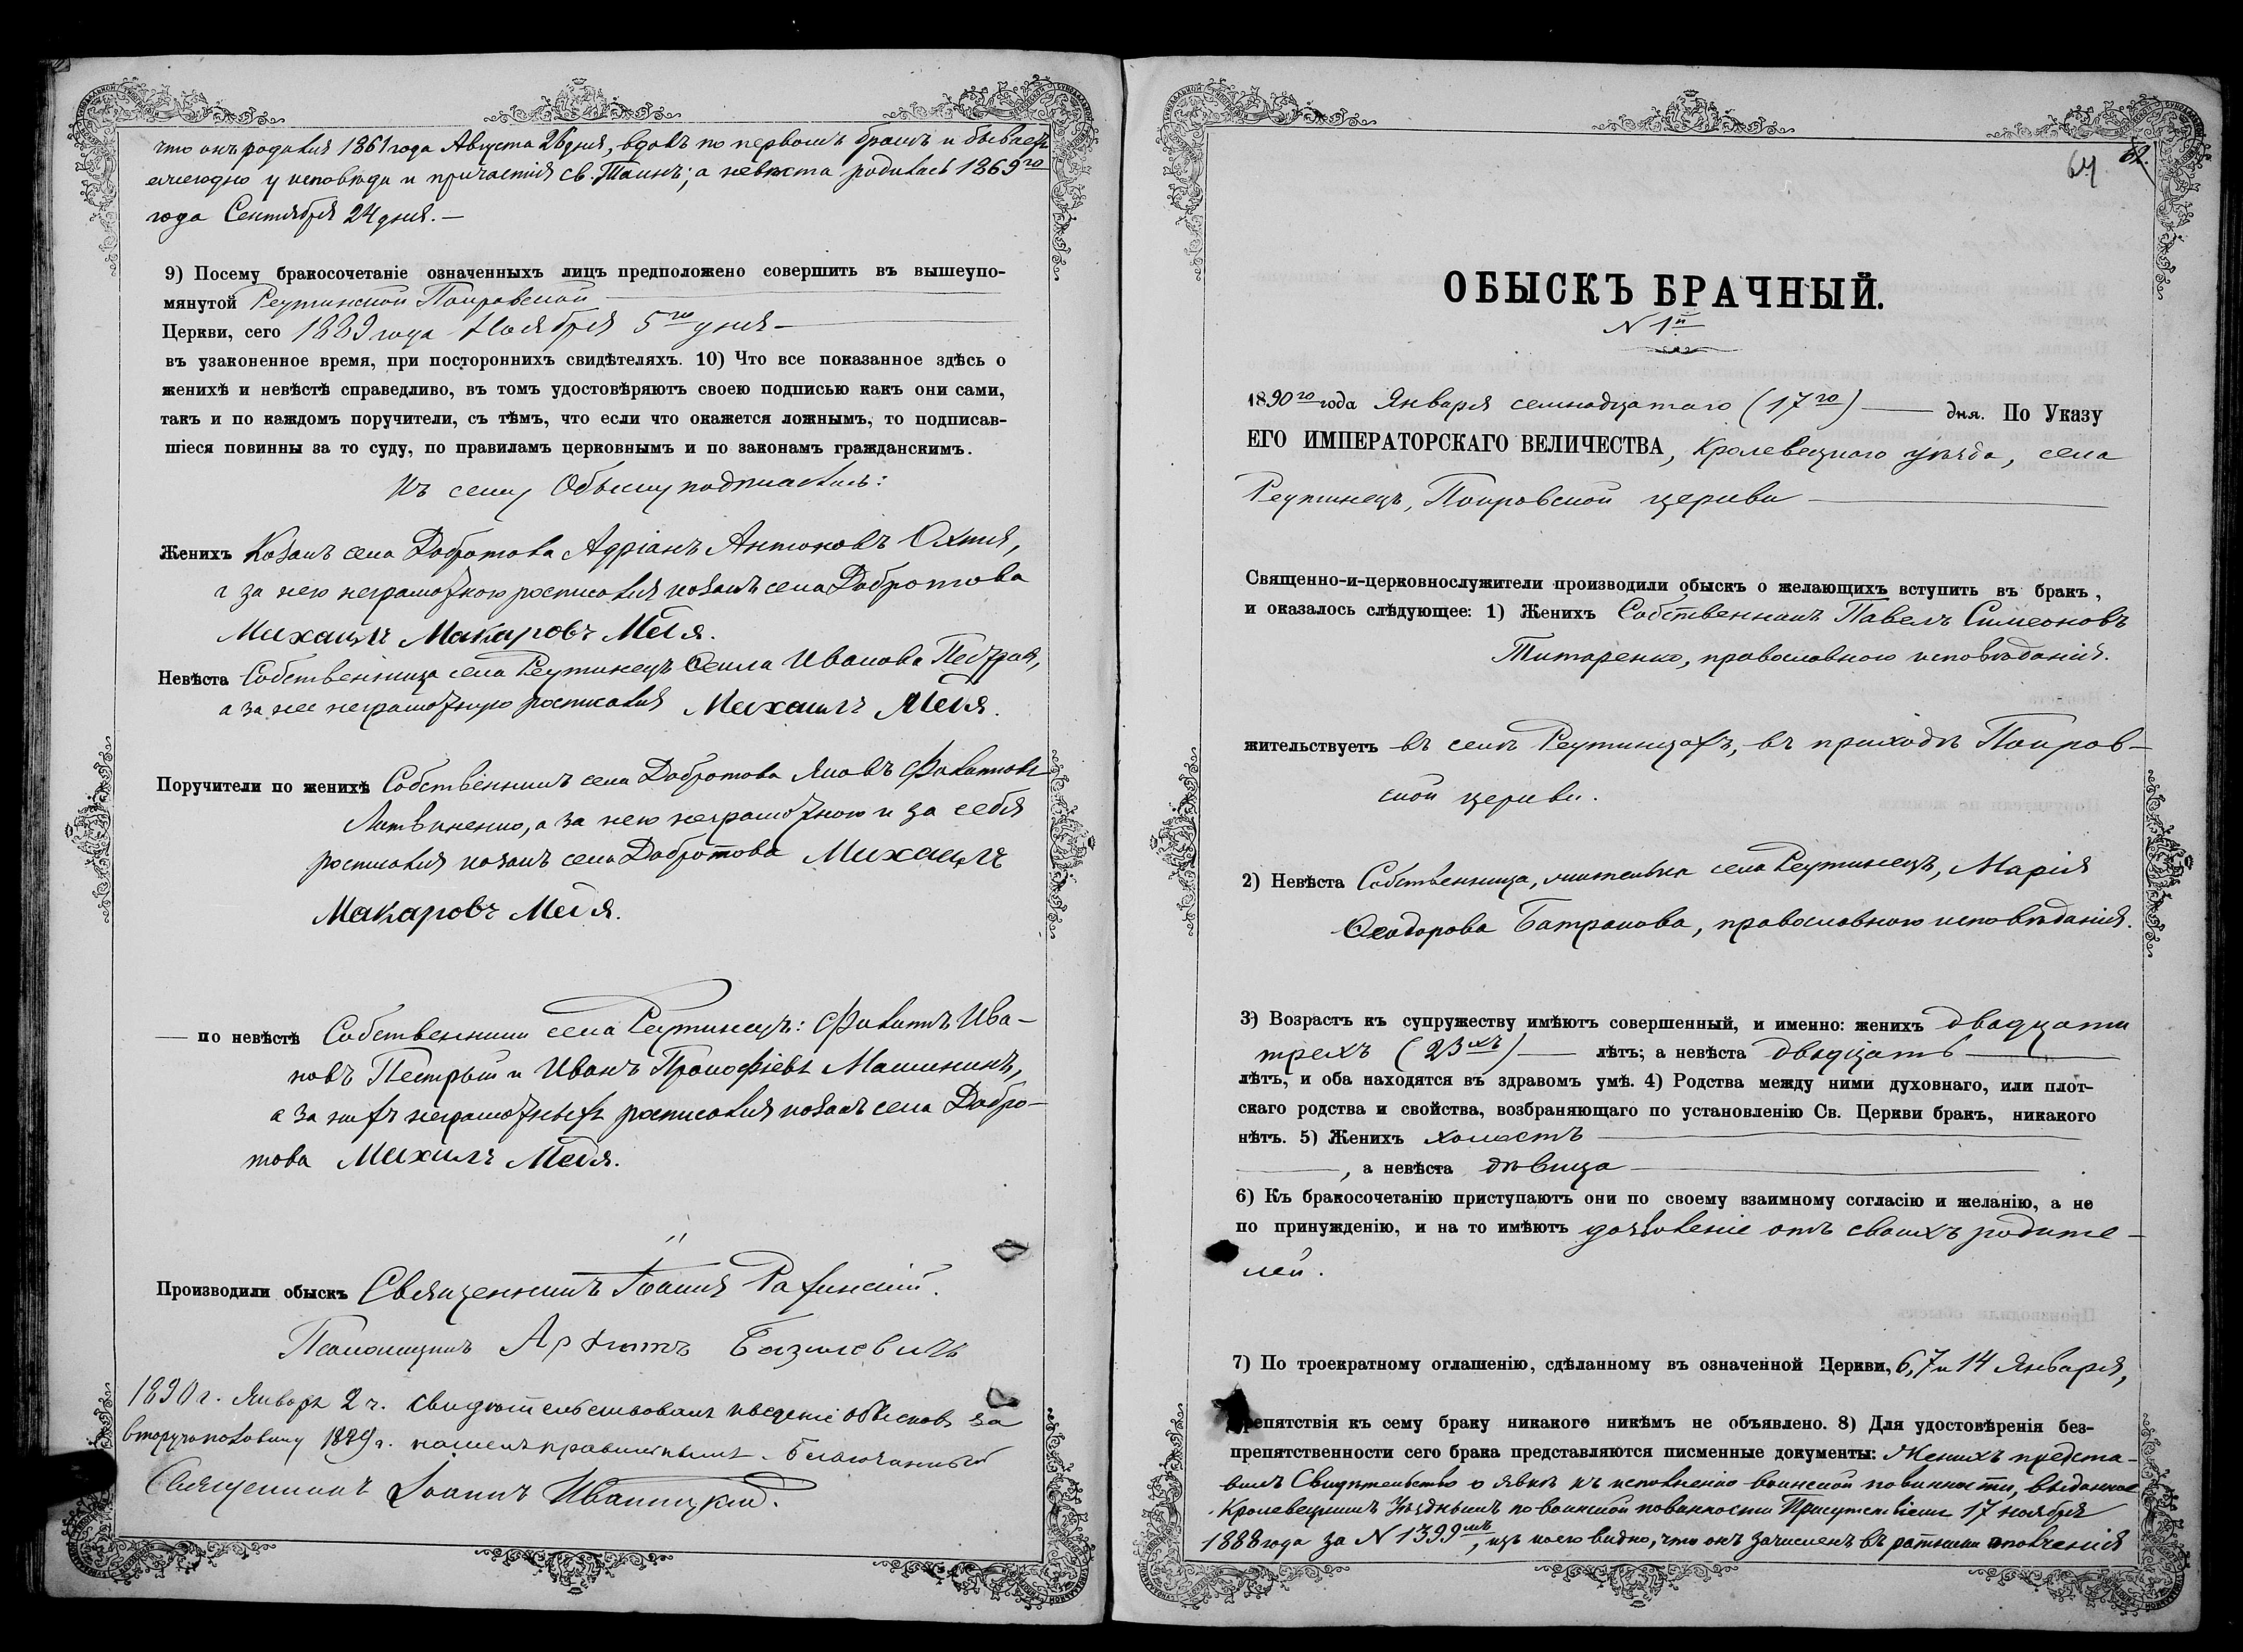 что онъ родился 1861 года Августа 26 дня, вдовъ по первомъ бракѣ и бываетъ
ежегодно у исповѣди и причастія св. Таинъ; а невѣста родилась 1869го
года Сентября 24 дня. —
9) Посему бракосочетаніе означенныхъ лицъ предположено совершить въ вышеупо-
мянутой Реутинской Покровской
Церкви, сего 1889 года Ноября 5го дня —
въ узаконенное время, при постороннихъ свидѣтеляхъ. 10) Что все показанное здѣсь о
женихѣ и невѣстѣ справедливо, въ томъ удостовѣряютъ своею подписью какъ они сами,
такъ и по каждомъ поручители, съ тѣмъ, что если что окажется ложнымъ, то подписав-
шіеся повинны за то суду, по правиламъ церковнымъ и по законамъ гражданскимъ.
Къ сему Обыску подписались:
Женихъ Козакъ села Добротова Адріанъ Антоновъ
за него неграмотного росписался козакъ села Добротова
Михаилъ Макаровъ
Невѣста Собственница села Реутинецъ Ѳекла Иванова
а за нее неграмотную росписался Михаилъ
Поручители по женихѣ Собственникъ села Добротова Яковъ Филиповъ
Литвиненко, а за него неграмотного и за себя
росписался козакъ села Добротова Михаилъ
Макаровъ
— по невѣстѣ Собственники села Реутинецъ: Филипъ Ива-
новъ Пестрый и Иванъ Прокофіевъ
а за нихъ неграмотныхъ росписался козакъ села Добро-
това Михаилъ
Производили обыскъ Священникъ Іоаннъ
Псаломщикъ Базилевичъ
1890 г. Января 2 ч. свидѣтельствовалъ веденіе обысковъ за
вторую половину 1889 г. нашелъ правильнымъ. Благочинный
Священникъ Іоаннъ Иваницкій.
64 62.
ОБЫСКЪ БРАЧНЫЙ.
N 1й
1890го года Января семнадцатаго (17го) — дня. По Указу
ЕГО ИМПЕРАТОРСКАГО ВЕЛИЧЕСТВА, Кролевецкаго уѣзда, села
Реутинецъ, Покровской церкви —
Священно-и-церковнослужители производили обыскъ о желающихъ вступить въ бракъ,
и оказалось слѣдующее: 1) Женихъ Собственникъ Павелъ Симеоновъ
Титаренко, православного исповѣданія.
жительствуетъ въ селѣ Реутинцахъ, въ приходѣ Покров-
ской церкви.
2) Невѣста Собственница, жителька села Реутинецъ, Марія
Ѳеодорова Батракова, православного исповѣданія.
3) Возрастъ къ супружеству имѣютъ совершенный, и именно: женихъ двадцати
трехъ (23хъ) — лѣтъ; а невѣста двадцать —
лѣтъ, и оба находятся въ здравомъ умѣ. 4) Родства между ними духовнаго, или плот-
скаго родства и свойства, возбраняющаго по установленію Св. Церкви бракъ, никакого
нѣтъ. 5) Женихъ холостъ —
—, а невѣста дѣвица —
6) Къ бракосочетанію приступаютъ они по своему взаимному согласію и желанію, а не
по принужденію, и на то имѣютъ дозволеніе отъ своихъ родите-
лей.
7) По троекратному оглашенію, сдѣланному въ означенной Церкви, 6, 7 и 14 Января,
препятствія къ сему браку никакого никѣмъ не объявлено. 8) Для удостовѣренія без-
препятственности сего брака представляются писменные документы: Женихъ предста-
вилъ Свидѣтельство о явкѣ къ исполненію воинской повинности, выданное
Кролевецкимъ Уѣзднымъ по воинской повинности Присутствіемъ 17 ноября
1888 года за N 1399мъ, изъ коего видно, что онъ зачисленъ въ ратники ополченія